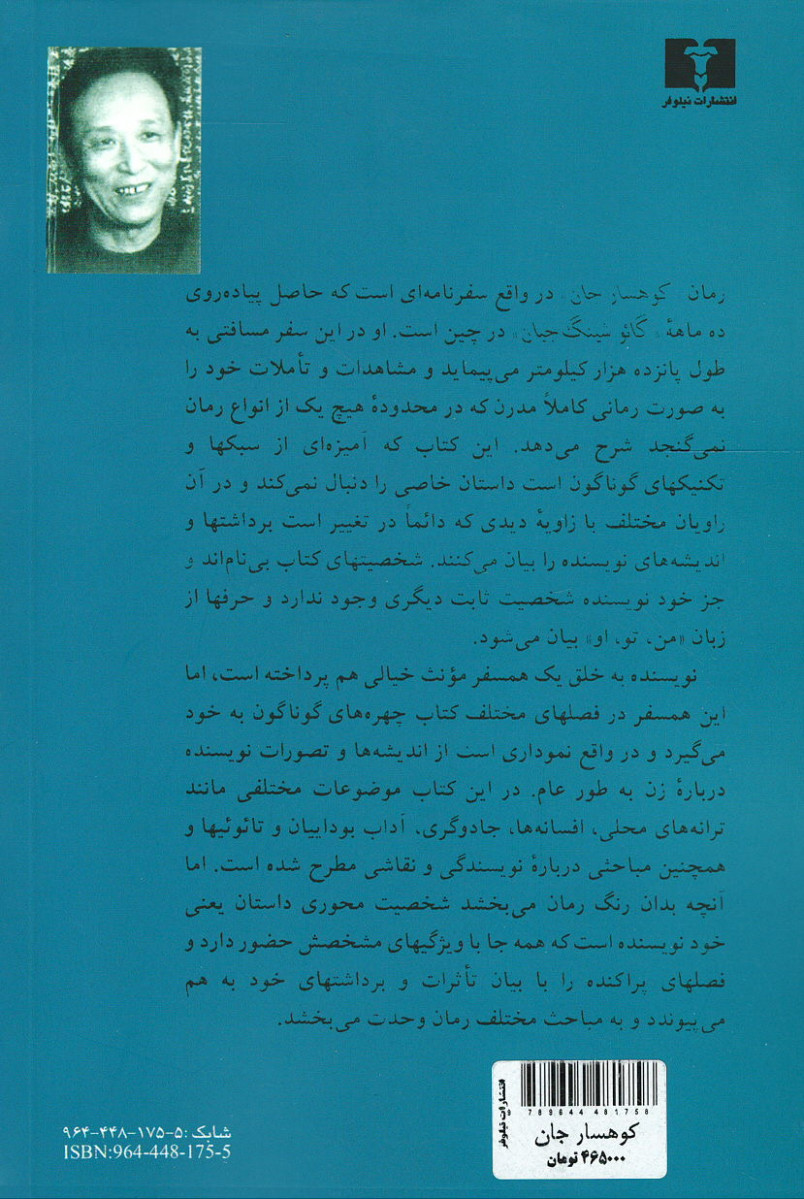 انتشارات نیلوفر
رمان «کوهسار جان» در واقع سفرنامه‌ای است که حاصل پیاده‌روی
ده ماههٔ «گائو شینگ جیان» در چین است. او در این سفر مسافتی به
طول پانزده هزار کیلومتر می‌پیماید و مشاهدات و تأملات خود را
به صورت رمانی کاملاً مدرن که در محدودهٔ هیچ یک از انواع رمان
نمی‌گنجد شرح می‌دهد. این کتاب که آمیزه‌ای از سبکها و
تکنیکهای گوناگون است داستان خاصی را دنبال نمی‌کند و در آن
راویان مختلف با زاویهٔ دیدی که دائماً در تغییر است برداشتها و
اندیشه‌های نویسنده را بیان می‌کنند. شخصیتهای کتاب بی‌نام‌اند و
جز خود نویسنده شخصیت ثابت دیگری وجود ندارد و حرفها از
زبان «من، تو، او» بیان می‌شود.
نویسنده به خلق یک همسفر مؤنث خیالی هم پرداخته است، اما
این همسفر در فصلهای مختلف کتاب چهره‌های گوناگون به خود
می‌گیرد و در واقع نموداری است از اندیشه‌ها و تصورات نویسنده
دربارهٔ زن به طور عام. در این کتاب موضوعات مختلفی مانند
ترانه‌های محلی، افسانه‌ها، جادوگری، آداب بوداییان و تائوئیها و
همچنین مباحثی دربارهٔ نویسندگی و نقاشی مطرح شده است. اما
آنچه بدان رنگ رمان می‌بخشد شخصیت محوری داستان یعنی
خود نویسنده است که همه جا با ویژگیهای مشخصش حضور دارد و
فصلهای پراکنده را با بیان تأثرات و برداشتهای خود به هم
می‌پیوندد و به مباحث مختلف رمان وحدت می‌بخشد.
شابک: ۵-۱۷۵-۴۴۸-۹۶۴
ISBN:964-448-175-5
انتشارات نیلوفر
789644 481758
کوهسار جان
۴۶۵۰۰۰ تومان